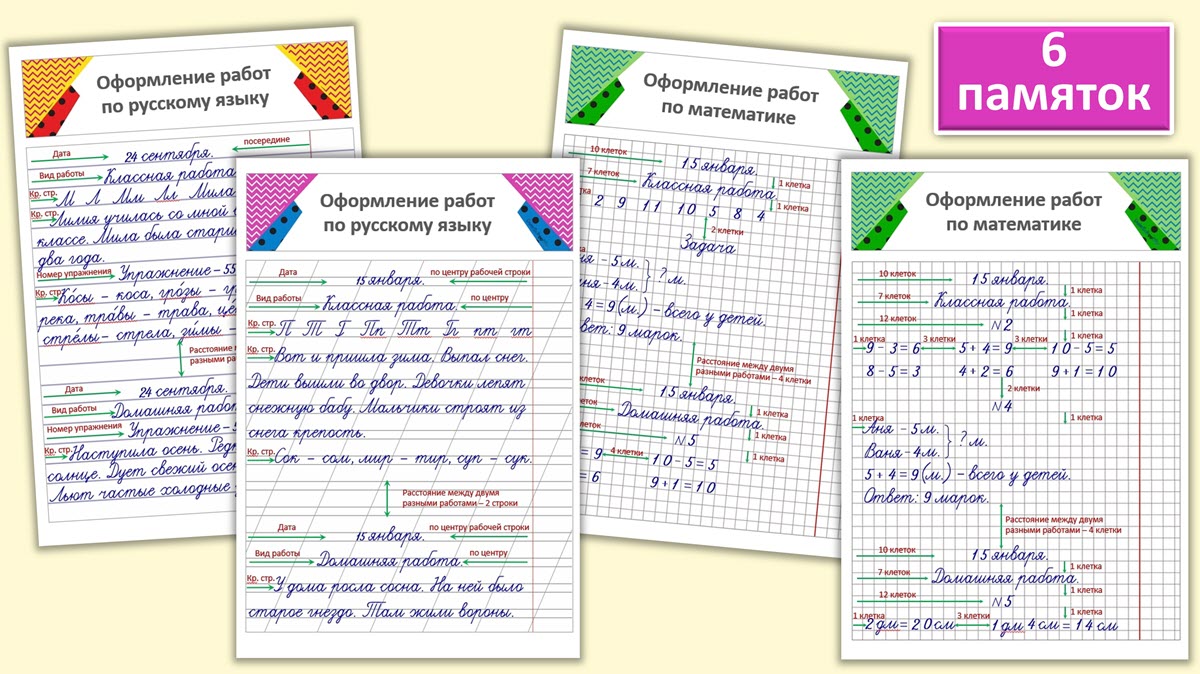 6
памяток
Оформление работ
по русскому языку
Дата
24 сентября.
посередине
Вид работы
Классная работа
Кр. стр.
М Л Мм Лл Мила
Кр. стр.
Лилия училась со мной
классе. Мила была
два года.
Номер упражнения
Упражнение – 55
Кр. стр.
Косы – коса, грозы –
река, травы – трава,
стрелы – стрела, зимы –
Расстояние
разными
Дата
24 сентября.
Вид работы
Домашняя
Номер упражнения
Упражнение –
Кр. стр.
Наступила осень.
солнце. Дует свежий
Льют частые холодные
Оформление работ
по русскому языку
Дата
15 января.
по центру рабочей строки
Вид работы
Классная работа.
по центру
Кр. стр.
П Т Г Пп Тт Гг пт гт
Кр. стр.
Вот и пришла зима. Выпал снег.
Дети вышли во двор. Девочки лепят
снежную бабу. Мальчики строят из
снега крепость.
Кр. стр.
Сок – сом, мир – тир, суп – сук.
Расстояние между двумя
разными работами – 2 строки
Дата
15 января.
по центру рабочей строки
Вид работы
Домашняя работа.
по центру
Кр. стр.
У дома росла сосна. На ней было
старое гнездо. Там жили вороны.
Оформление работ
по математике
10 клеток
15 января.
1 клетка
7 клеток
Классная работа.
1 клетка
2 9 11 10 5 8 4
2 клетки
Задача
– 5 м.
– 4 м.
? м.
4 = 9 (м.) – всего у детей.
9 марок.
Расстояние между двумя
разными работами – 4 клетки
15 января.
1 клетка
Домашняя работа.
1 клетка
№5
1 клетка
= 9
4 клетки
10 – 5 = 5
= 6
9 + 1 = 10
Оформление работ
по математике
10 клеток
15 января.
1 клетка
7 клеток
Классная работа.
1 клетка
12 клеток
№2
1 клетка
1 клетка
9 – 3 = 6
3 клетки
5 + 4 = 9
3 клетки
10 – 5 = 5
8 – 5 = 3 4 + 2 = 6 9 + 1 = 10
2 клетки
№4
1 клетка
1 клетка
Аня – 5 м.
Ваня – 4 м.
? м.
5 + 4 = 9 (м.) – всего у детей.
Ответ: 9 марок.
Расстояние между двумя
разными работами – 4 клетки
10 клеток
15 января.
1 клетка
7 клеток
Домашняя работа.
1 клетка
12 клеток
№5
1 клетка
1 клетка
2 дм = 20 см
3 клетки
1 дм 4 см = 14 см